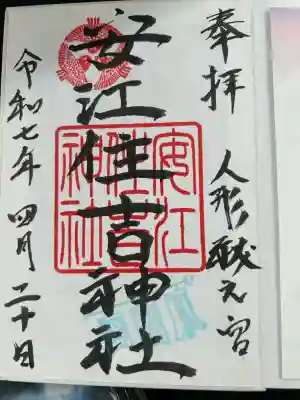 奉拝
人形献元宮
安江住吉神社
安江
住吉
神社
令和七年 四月二十日